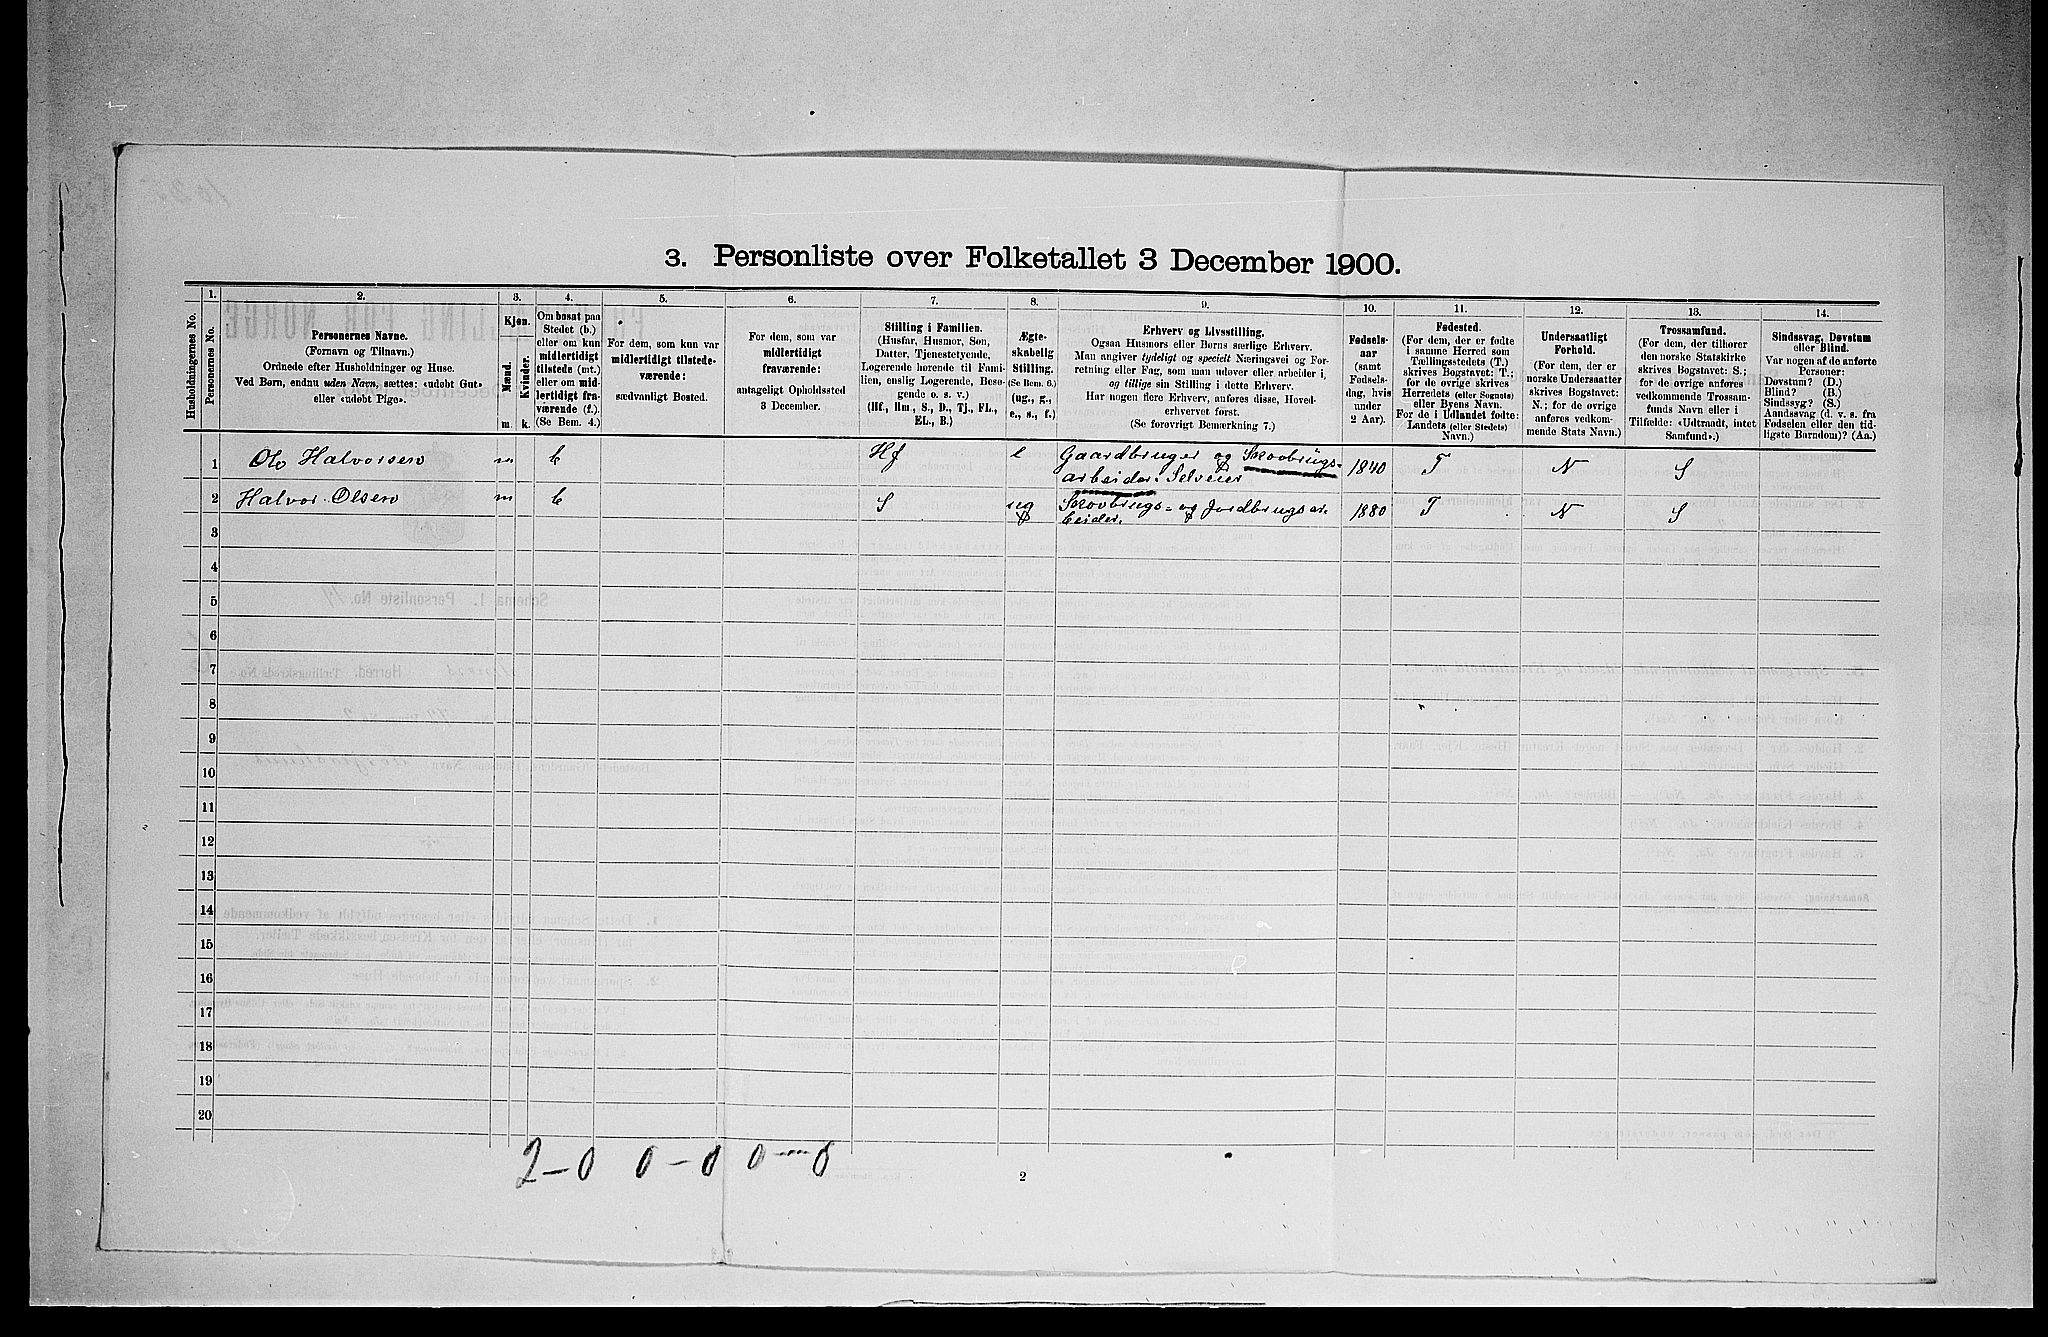 3. Personliste over Folketallet 3 December 1900.
1. 2. 3. 4. 5. 6. 7. 8. 9. 10. 11. 12. 13. 14.
Husholdningernes No.
Personernes No.
Personernes Navne.
(Fornavn og Tilnavn.)
Ordnede efter Husholdninger og Huse.
Ved Børn, endnu uden Navn, sættes: «udøbt Gut»
eller «udøbt Pige».
Kjøn.
Mænd.
Kvinder.
m. k.
Om bosat paa
Stedet (b.)
eller om kun
midlertidigt
tilstede (mt.)
eller om mid-
lertidigt fra-
værende (f.).
(Se Bem. 4.)
For dem, som kun var
midlertidigt tilstede-
værende:
sædvanligt Bosted.
For dem, som var
midlertidigt
fraværende:
antageligt Opholdssted
3 December.
Stilling i Familien.
(Husfar, Husmor, Søn,
Datter, Tjenestetyende,
Logerende hørende til Fami-
lien, enslig Logerende, Besø-
gende o. s. v.)
(Hf., Hm., S., D., Tj., FL.,
EL., B.)
Ægte-
skabelig
Stilling.
(Se Bem. 6.)
(ug., g.,
e., s., f.)
Erhverv og Livsstilling.
Ogsaa Husmors eller Børns særlige Erhverv.
Man angiver tydeligt og specielt Næringsvei og For-
retning eller Fag, som man udøver eller arbeider i,
og tillige sin Stilling i dette Erhverv.
Har nogen flere Erhverv, anføres disse, Hoved-
erhvervet først.
(Se forøvrigt Bemærkning 7.)
Fødsels-
aar
(samt
Fødsels-
dag, hvis
under
2 Aar).
Fødested.
(For dem, der er fødte
i samme Herred som
Tællingsstedets (T.)
skrives Bogstavet: T.;
for de øvrige skrives
Herredets (eller Sognets)
eller Byens Navn.
For de i Udlandet fødte:
Landets (eller Stedets)
Navn.)
Undersaatligt
Forhold.
(For dem, der er
norske Undersaatter
skrives Bogstavet:
N.; for de øvrige
anføres vedkom-
mende Stats Navn.)
Trossamfund.
(For dem, der tilhører
den norske Statskirke
skrives Bogstavet: S.;
for de øvrige anføres
vedkommende Trossam-
funds Navn eller i
Tilfælde: «Udtraadt, intet
Samfund».)
Sindssvag, Døvstum
eller Blind.
Var nogen af de anførte
Personer:
Døvstum? (D.)
Blind? (B.)
Sindssyg? (S.)
Aandssvag (d. v. s. fra
Fødselen eller den tid-
ligste Barndom)? (Aa.)
1 Ole Halvorsen m b Hf e Gaardbruger og Skovbrugs-
arbeider. Selveier 1840 T N S
2 Halvor Olsen m b S ug Skovbrugs- og Jordbrugsar-
beider. 1880 T N S
3
4
5
6
7
8
9
10
11
12
13
14
15
16
17
18
19
20
2–0 0–0 0–0
2